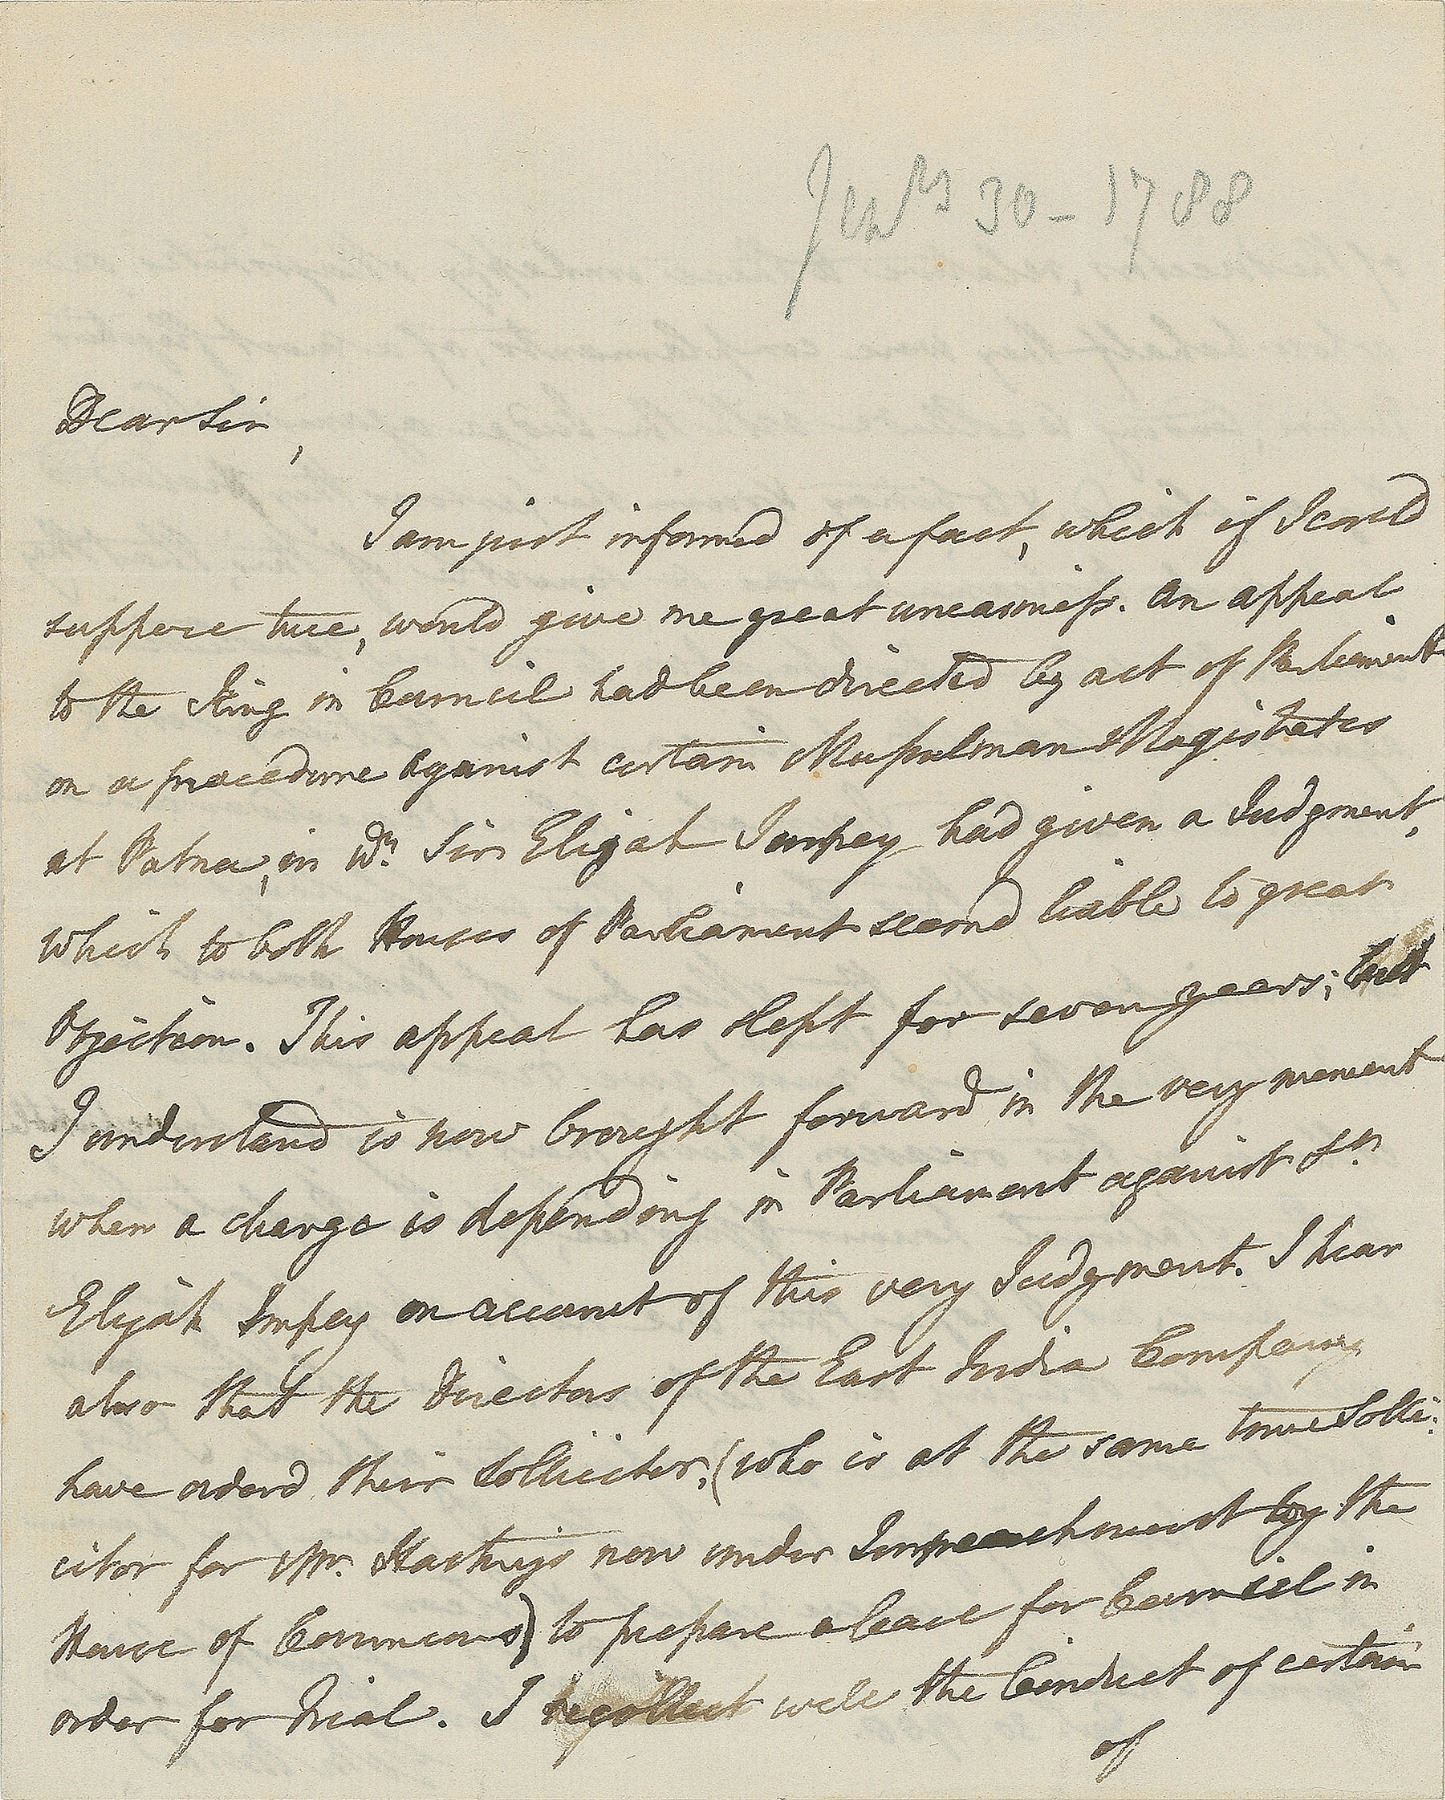 30 - 1788
Dear Sir,
I am just informed of a fact, which if I could
suppose true, would give me great uneasiness. An appeal
to the King in Council had been directed by act of Parliament
on a procedure against certain Musulman Magistrates
at Patna, in wh. Sir Elijah Impey had given a Judgment,
which to both Houses of Parliament seemd liable to great
Objection. This appeal has slept for seven years; but
I understand is now brought forward in the very moment
when a charge is depending in Parliament against Sr.
Elijah Impey on account of this very Judgment. I hear
also that the Directors of the East India Company
have orderd their Sollicitor, (who is at the same time Solli:
citor for Mr. Hastings now under Impeachment by the
House of Commons) to prepare a Case for Council in
order for Trial. I recollect well the Conduct of certain
of